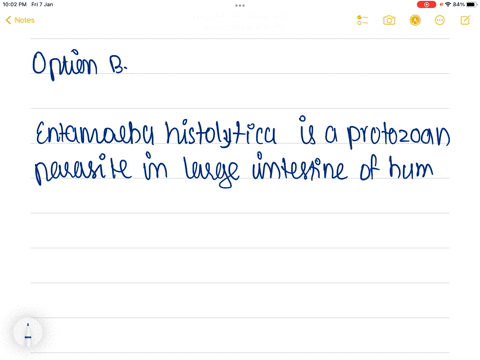 10:02 PM Fri 7 Jan
84%
Notes
Option B.
Entamaeba histolytica is a protozoan
parasite in large intestine of hum